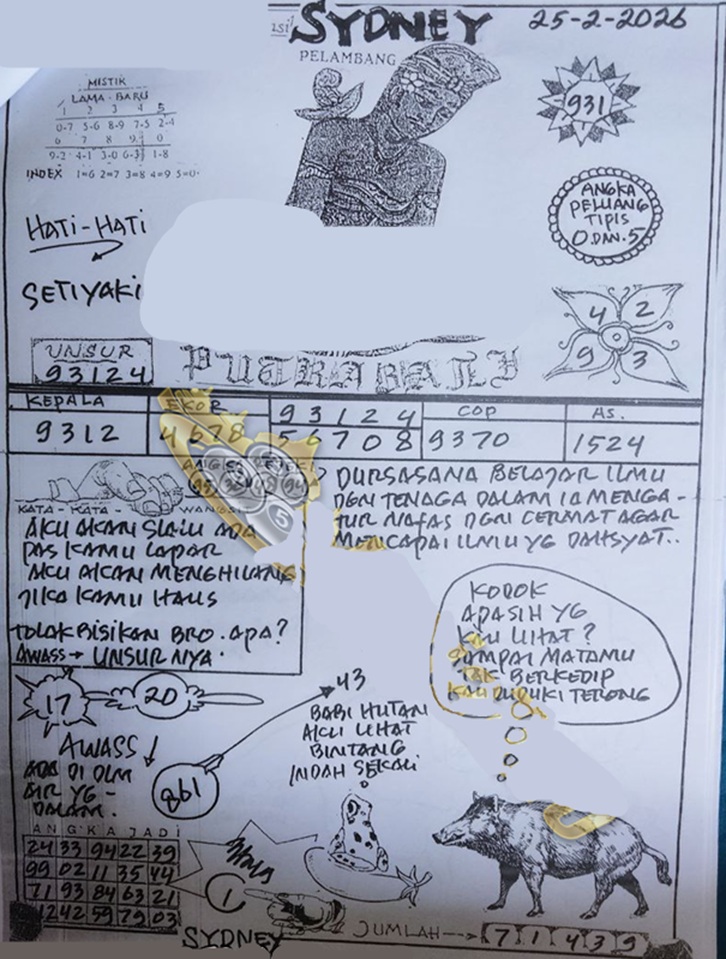 SYDNEY
25-2-2026
PELAMBANG
MISTIK
LAMA - BARU
1 2 3 4 5
0-7 5-6 8-9 7-5 2-4
6 7 8 9 0
9-2 4-1 3-0 1-8
INDEX 1=6 2=7 3=8 4=9 5=0
931
ANGKA
PELUANG
TIPIS
0 DAN 5
HATI-HATI
SETIYAKI
4 2
9 3
UNSUR
93124
PUTRA BALI
KEPALA
9312
EKOR
4678
93124
56708
COP
9370
AS.
1524
KATA - KATA - WANGSIT
AKU AKAN SLALU ADA
PAS KAMU LAPAR
AKU AKAN MENGHILANG
JIKA KAMU HAUS
TOLAK BISIKAN BRO. APA?
AWASS → UNSURNYA.
DURSASANA BELAJAR ILMU
DGN TENAGA DALAM IA MENGA-
TUR NAFAS DGN CERMAT AGAR
MENCAPAI ILMU YG DAHSYAT..
KODOK
APASIH YG
KAU LIHAT?
SAMPAI MATAMU
TAK BERKEDIP
KAU DUDUKI TERONG
17
20
43
BABI HUTAN
AKU LIHAT
BINTANG
INDAH SEKALI
AWASS!
ADA DI DLM
AIR YG -
DALAM.
861
ANGKA JADI
24 33 94 22 39
99 02 11 35 44
71 93 84 63 21
12 42 59 79 03
1
SYDNEY
JUMLAH --> 7 1 4 3 9